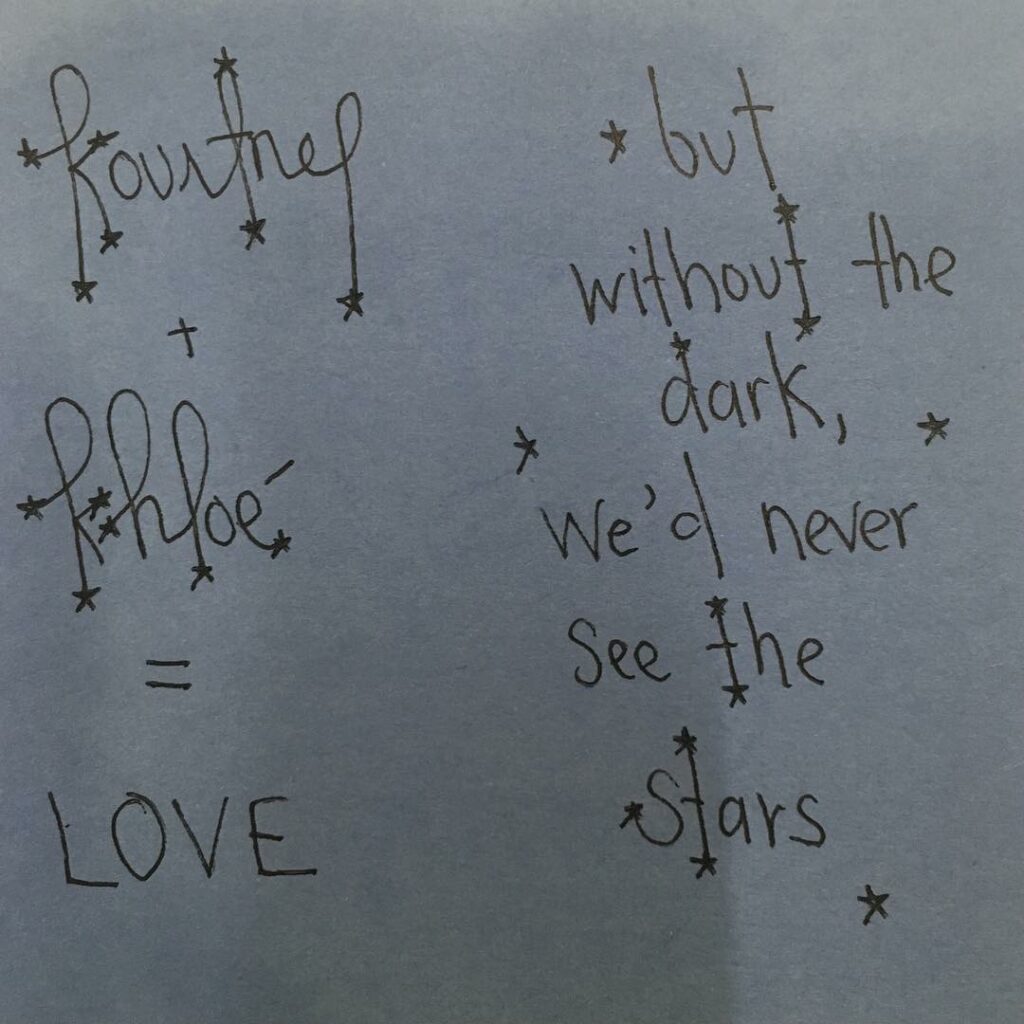 Kourtney
+
Khloé
=
LOVE
but
without the
dark,
we'd never
see the
stars